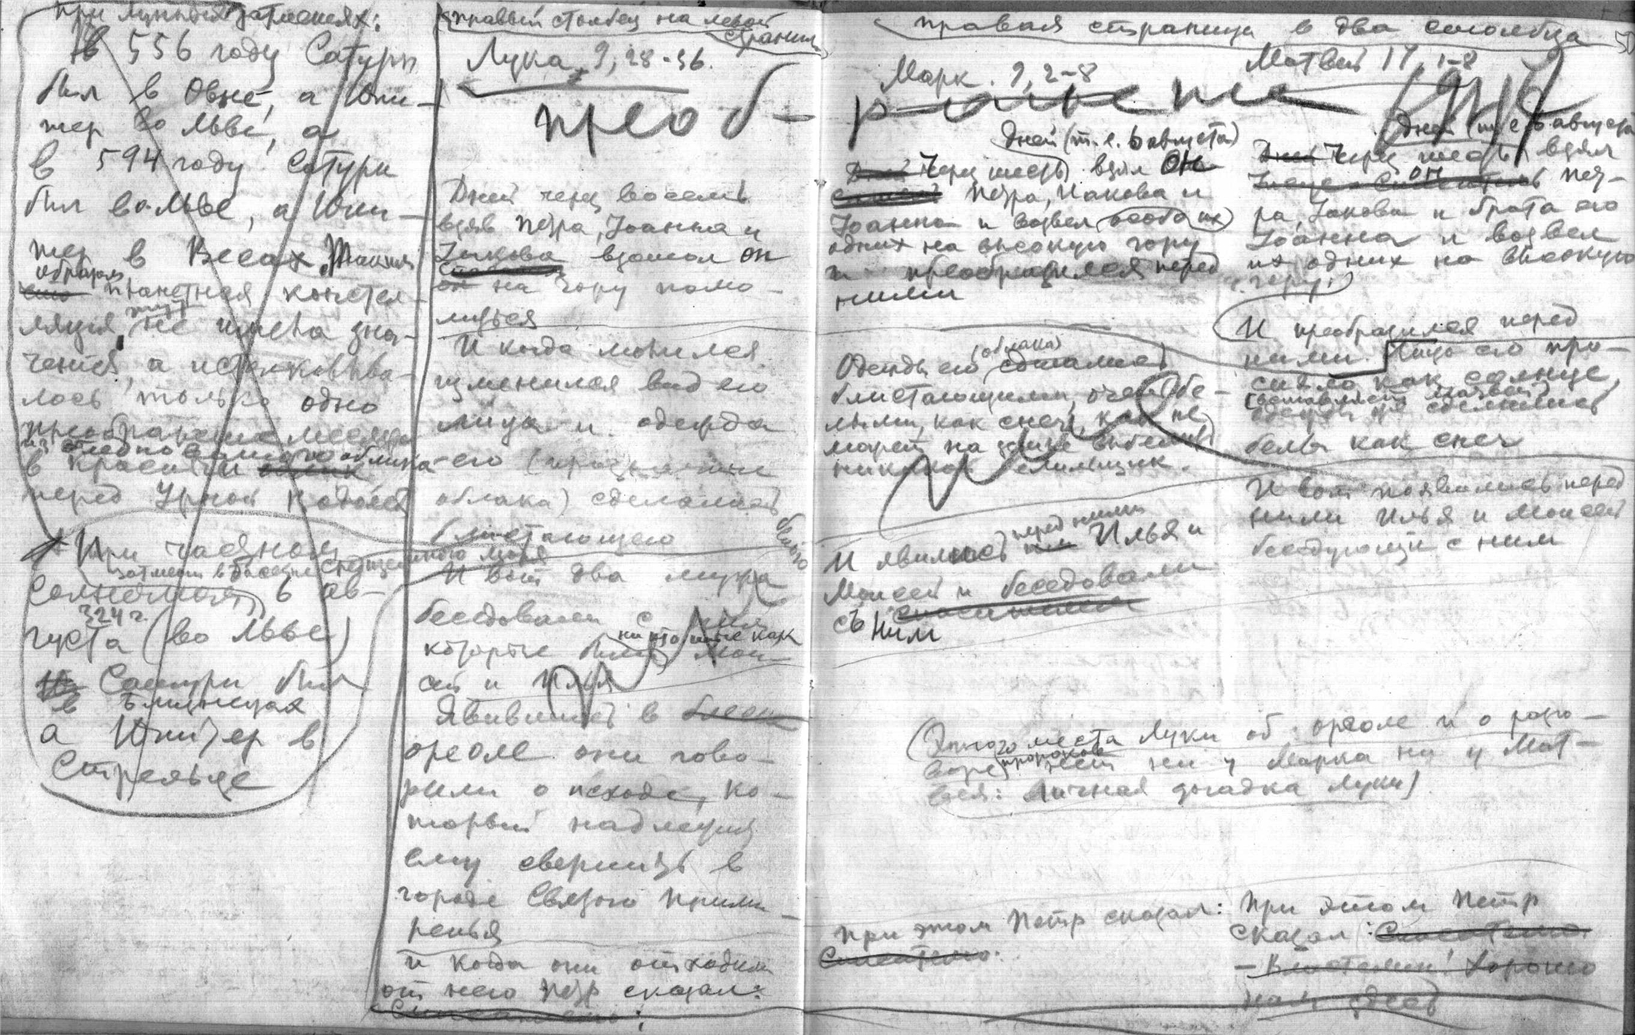 при лунных затмениях:
В 556 году Сатурн
был в Овне, а Юпи-
тер во Льве, а
в 594 году Сатурн
был во Льве, а Юпи-
тер в Весах. Таким
образом
планетная констел-
ляция тут не имела зна-
чения, а истолковыва-
лось только одно
преображение месяца
из бледно белого облика
в красный
перед Урной Водолея
При частном
солнечном в ав-
густа (во Льве)
Сатурн был
в Близнецах
а Юпитер в
Стрельце
правый столбец на левой
страни
Лука 9, 28-36.
преоб-
Дней через восемь
взяв Петра, Иоанна и
Иакова взошол он
на гору помо-
литься
И когда молился
изменился вид его
лица и одежда
его (
облака) сделалась
блистающего
белого
И вот два мужа
беседовали с ним
которые были
никто иные как
Мои-
сей и Илья
Явившись в
ореоле они гово-
рили о исходе, ко-
торый надлежит
ему свершить в
городе Святого Прими-
ренья
и когда они отходили
от него Петр сказал:
правая страница в два столбца
51
Марк. 9, 2-8
ражение
дней (т. е. 6 августа)
Через шесть взял он
Петра, Иакова и
Иоанна и возвел особо их
одних на высокую гору
и преобразился перед
ними
Одежды его (облака) сделались
блистающими, очень бе-
лыми, как снег, как не
может на земле выбелить
никакой белильщик.
И явились перед ними Илья и
Моисей и беседовали
съ ним
(Этого места Луки об ореоле и о разго-
воре пророков нет ни у Марка ни у Мат-
вея: личная догадка Луки)
При этом Петр сказал:
Матвей 17, 1-8
дней (т. е. 6 августа
Через шесть взял
он Пет-
ра, Иакова и брата его
Иоанна и возвел
их одних на высокую
гору.
И преобразился перед
ними. Лицо его про-
сияло как солнце,
(вставляет Матвей)
одежды же сделались
белы как снег
И вот появились перед
ними Илья и Моисей
беседующие с ним
При этом Петр
сказал:
- Властелин! Хорошо
нам здесь